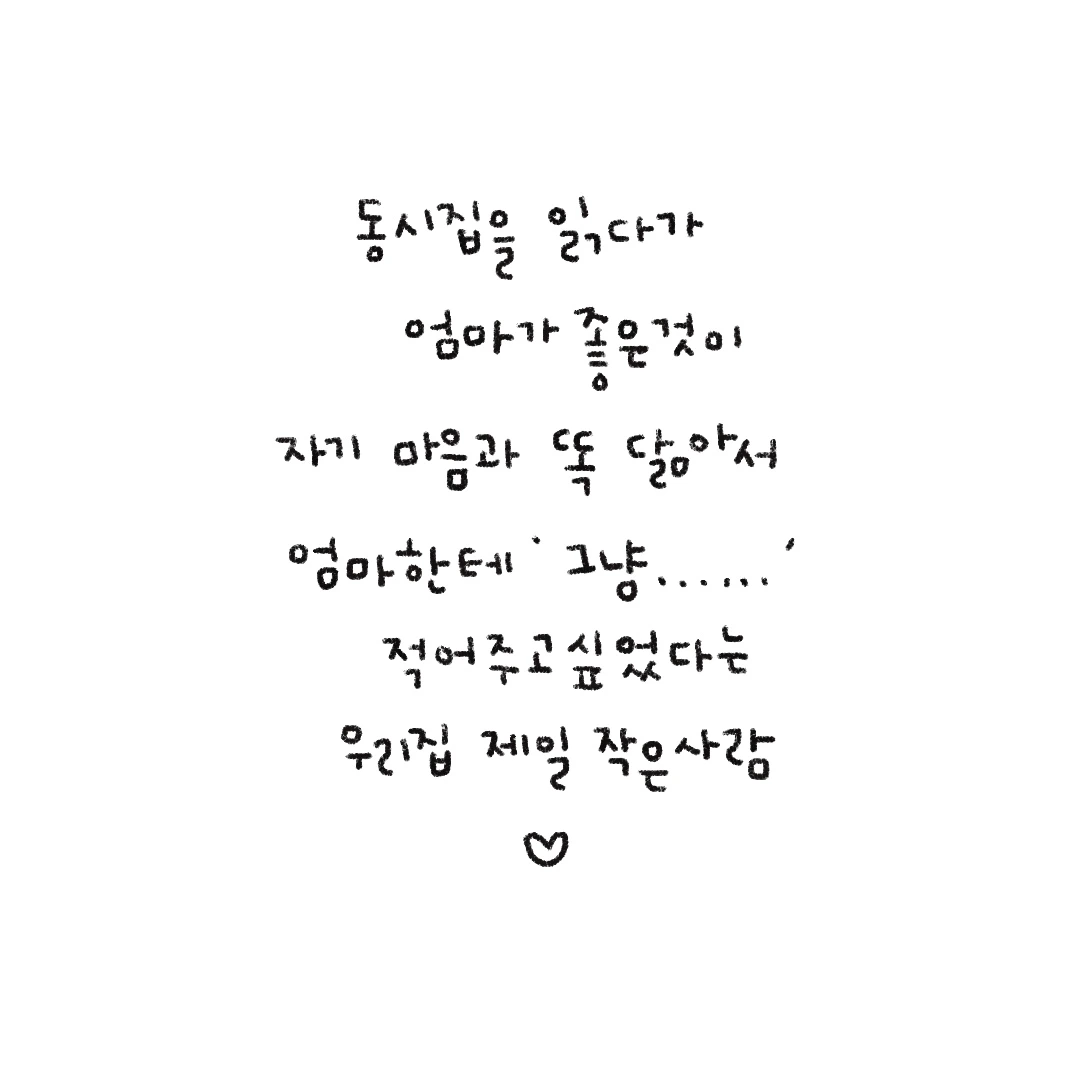 동시집을 읽다가
엄마가 좋은것이
자기 마음과 똑 닮아서
엄마한테 '그냥......'
적어주고싶었다는
우리집 제일 작은사람
♡